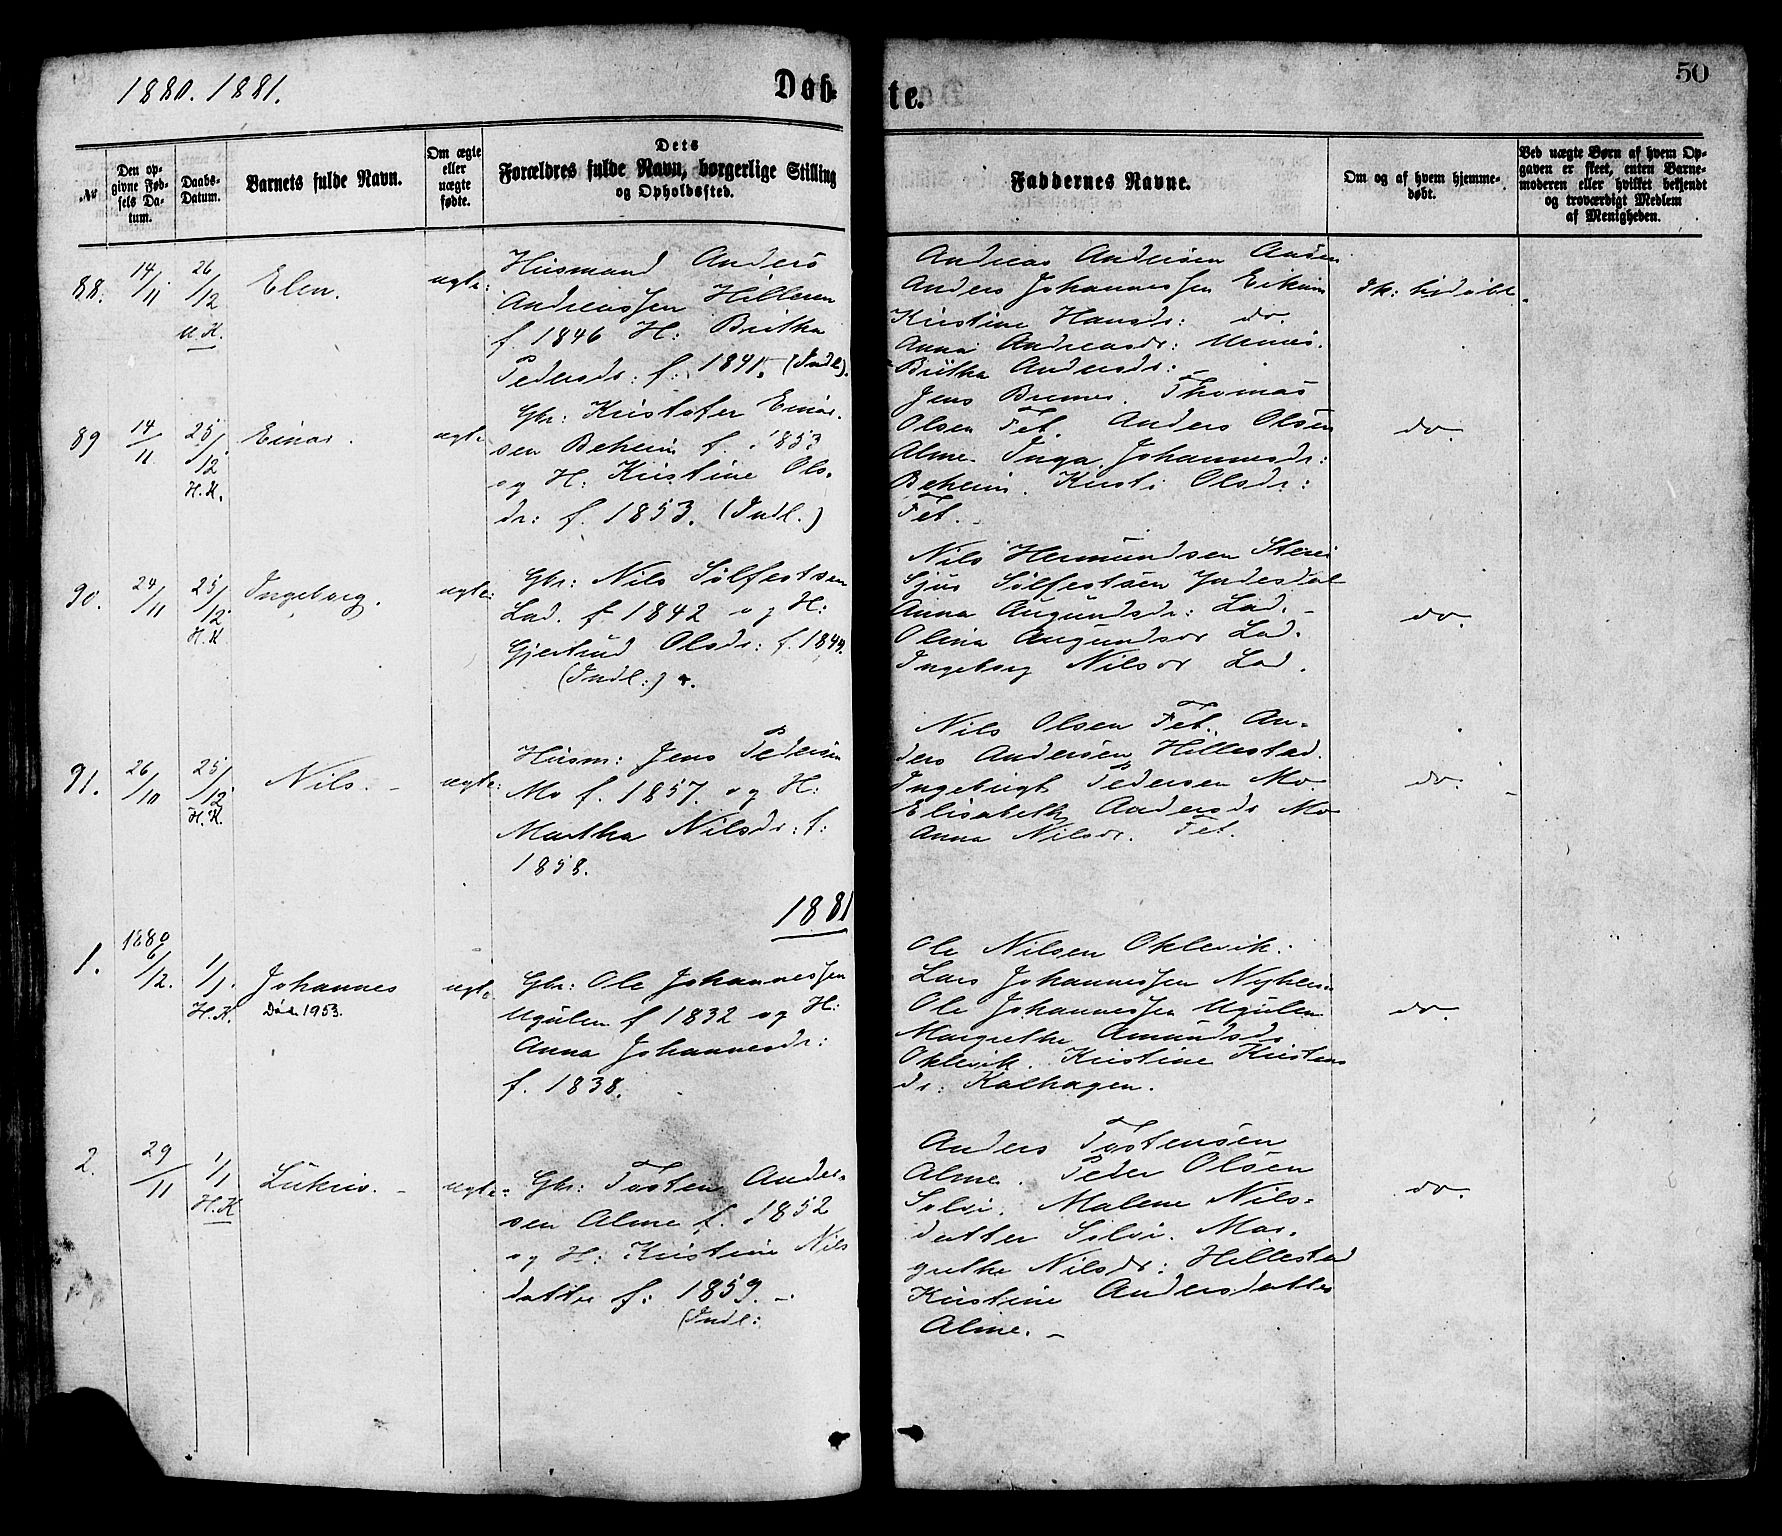 1880. 1881.
Døbte.
50
No
Den opgivne Fødsels Datum.
Daabs-Datum.
Barnets fulde Navn.
Om ægte eller uægte fødte.
Dets Forældres fulde Navn, borgerlige Stilling og Opholdssted.
Faddernes Navne.
Om og af hvem hjemmedøbt.
Ved uægte Børn af hvem Opgaven er skeet, enten Barnemoderen eller hvilket bekjendt og troværdigt Medlem af Menigheden.
88.
14/11
26/12
U.K.
Elen.
ægte:
Husmand Anders
Andreassen Hilleren
f. 1846 H: Britha
Pedersdr: f: 1841. (Indl).
Andreas Andersen Aasen
Anders Johannessen Eikum
Kirstine Hansdr: do.
Anna Andreasdr:
Britha Andersdr: –
Ik: hjdøbt.
89
14/11
25/12
H.K.
Einar.
ægte
Gbr: Kristofer Einar-
sen Beheim f. 1853
og H: Kirstine Ols-
dr: f. 1853. (Indl.)
Jens Bremer. Thomas
Olsen Fet. Anders Olsen
Alme. Inga Johannesdr:
Beheim. Kirsti Olsdr:
Fet.
do.
90.
24/11
25/12
H.K.
Ingeborg.
ægte
Gbr: Nils Sølfestsen
Lad. f. 1842 og H:
Gjertrud Olsdr: f. 1844.
(Indl:)
Nils Hermundsen
Sjur Sølfestsen Indesdal
Anna Augundsdr: Lad. –
Olina Augundsdr Lad.
Ingeborg Nilsdr Lad.
do
91.
26/10
25/12
H.K.
Nils. –
ægte:
Husm: Jens Pedersen
Mo f. 1857. og H:
Martha Nilsdr: f:
1858.
Nils Olsen Fet. An-
ders Andersen Hillestad.
Ingebrigt Pedersen Mo.
Elisabeth Andersdr Mo
Anna Nilsdr. Fet.
do. –
1881
1.
1880
6/12.
1/1.
H.K.
Johannes
Død 1953.
ægte
Gbr: Ole Johannessen
Ugulen f 1832 og H:
Anna Johannesdr:
f. 1838.
Ole Nilsen Oklevik:
Lars Johannessen Nyheim
Ole Johannessen Ugulen
Margrethe Amundsdr
Oklevik. Kristine Kristens
dr: Kalhagen.
do.
2.
29/11
1/1
H.K
Lukris. –
ægte:
Gbr: Tosten Ander-
sen Alme f. 1852
og H: Kirstine Nils
datter f: 1859. –
(Indl:
Anders Tostensen
Alme. Peder Olsen
Solvi. Malene Nils-
datter Solvi. Mar-
grethe Nilsdr: Hillestad
Kirstine Andersdatter
Alme. –
do.